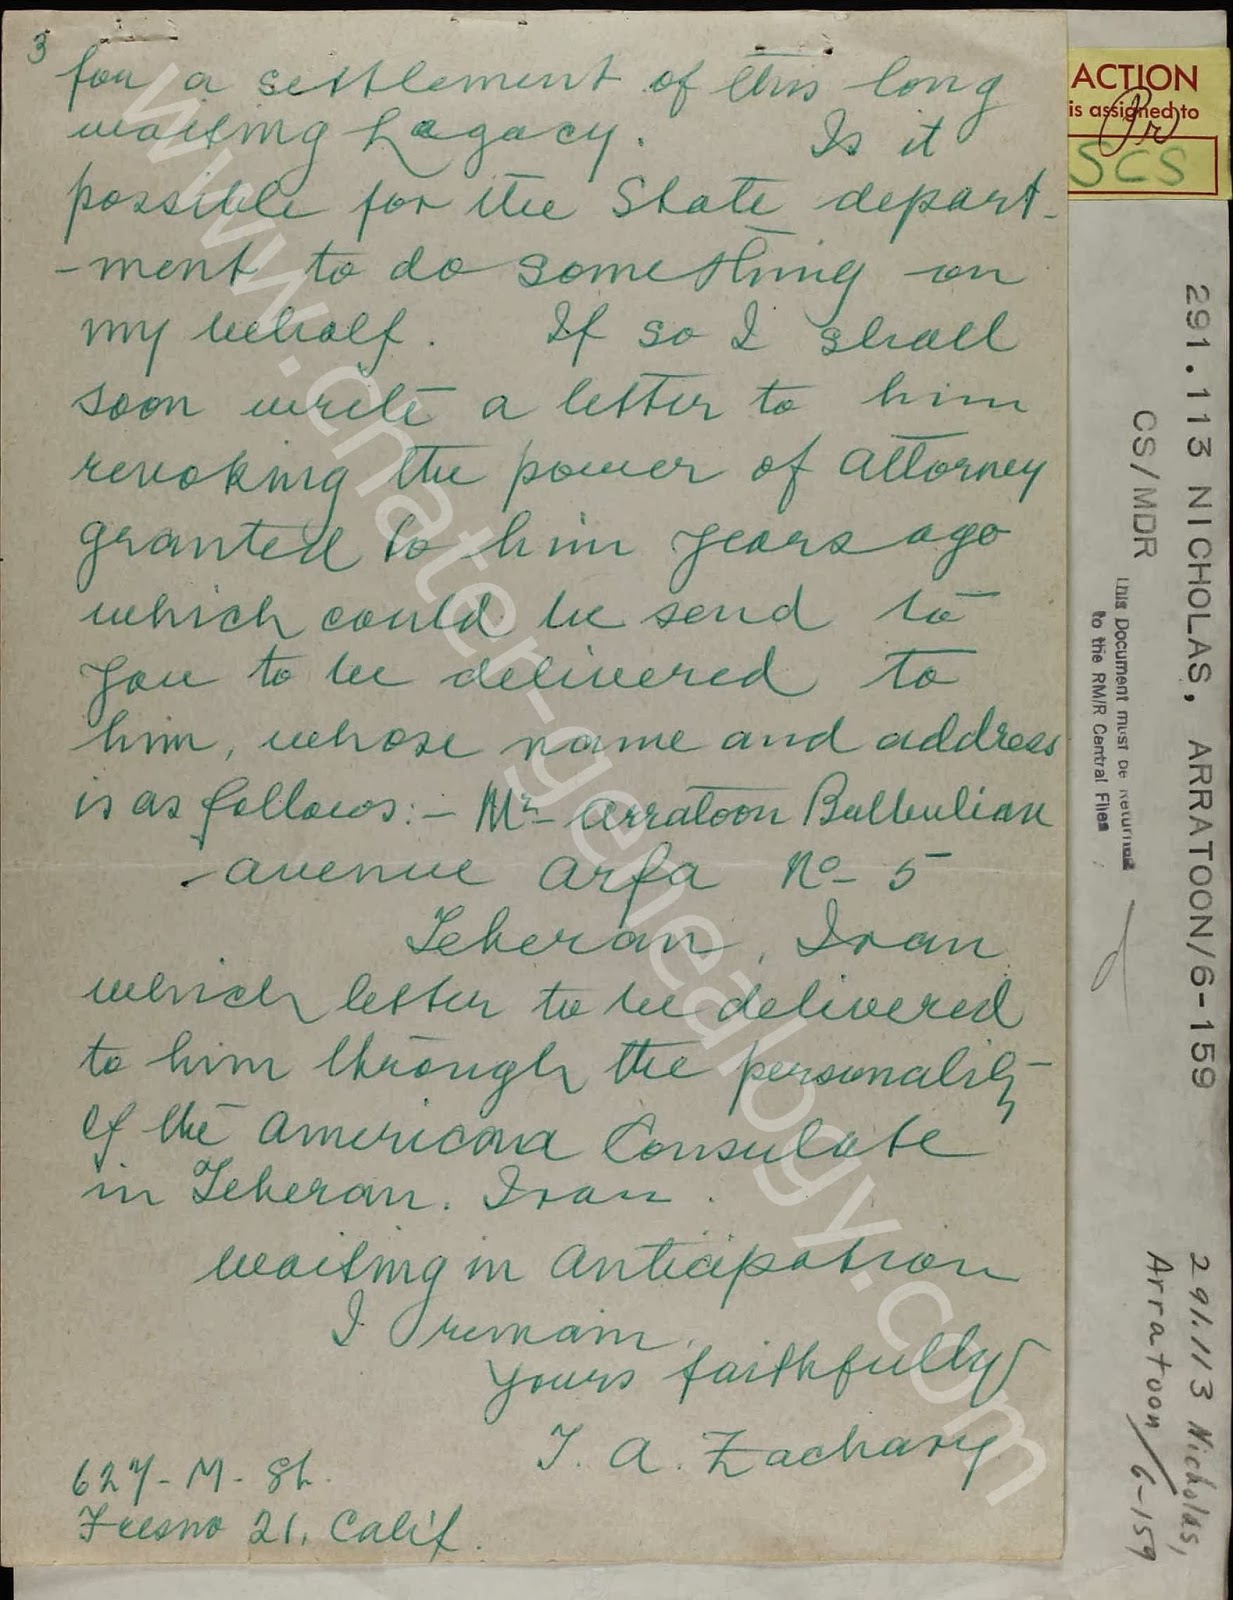 3
for a settlement of this long
waiting Legacy. Is it
possible for the State depart-
-ment to do something on
my behalf. If so I shall
soon write a letter to him
revoking the power of attorney
granted to him years ago
which could be send to
you to be delivered to
him, whose name and address
is as follows:- Mr Arratoon Bulbulian
-avenue Arfa No- 5
Teheran, Iran
which letter to be delivered
to him through the personality
of the American Consulate
in Teheran. Iran.
waiting in anticipation
I remain,
yours faithfully
T. A. Zachary
627- M- St.
Fresno 21, Calif.
ACTION
is assigned to
SCS
291.113 NICHOLAS, ARRATOON/6-159
CS/MDR
This Document must be Returned
to the RM/R Central Files
291.113 Nicholas,
Arratoon/6-159
www.chater-genealogy.com